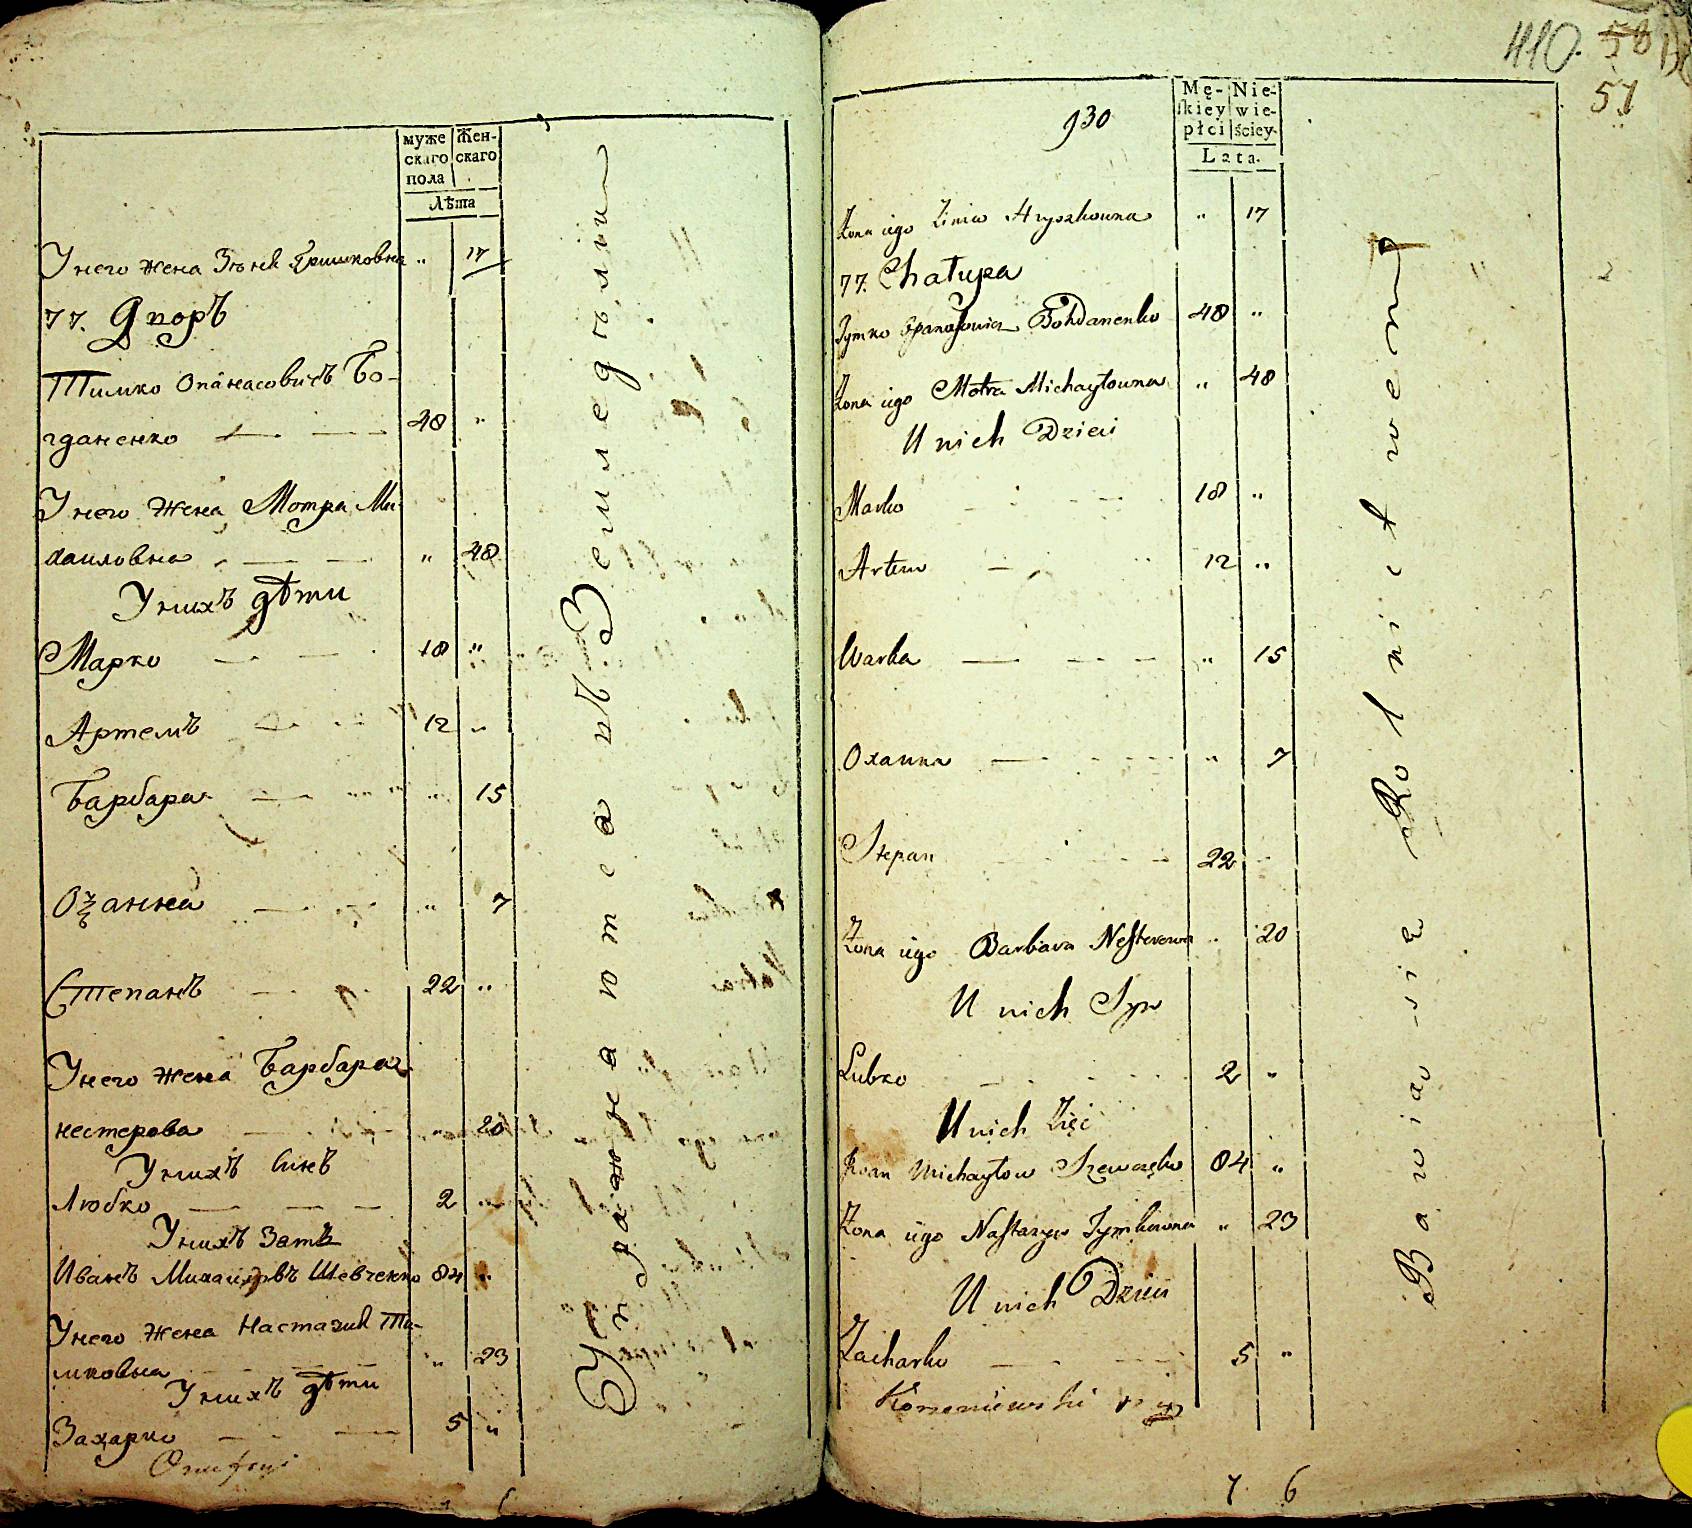 муже
скаго
пола
Жен-
скаго
Лѣта
У него жена Зѣнѣ Гришковна „ 17
77. Дворъ
Тимко Опанасовичъ Бо-
гданенко 48 „
У него жена Мотра Ми-
хаиловна „ 48
У нихъ дѣти
Марко 18 „
Артемъ 12 „
Барбара „ 15
Оѯанна „ 7
Степанъ 22 „
У него жена Барбара
нестерова „ 20
У нихъ Синъ
Любко 2 „
У нихъ Зать
Иванъ Михаиловъ Шевченко 84 „
У него жена Настазия Ти-
мковна „ 23
У нихъ дѣти
Захарко 5 „
Упражнаютса въ Земледѣлии
410. 58
57
930
Mę-
skiey
płci
Nie-
wie-
ściey
Lata.
Zona iego Zinia Hryszkowna „ 17
77. Chałupa
Tymko Opanasowicz Bohdanenko 48 „
Zona iego Motra Michayłowna „ 48
U nich Dzieci
Marko 18 „
Artem 12 „
Warka „ 15
Oxanna „ 7
Stepan 22 „
Zona iego Barbara Nesterowa „ 20
U nich Syn
Lubko 2 „
U nich Zięć
Iwan Michayłow Szewczęko 84 „
Zona iego Nastazya Tymkowna „ 23
U nich Dzieci
Zacharko 5 „
Korzeniewski
Bawią się Rolnictwem
7 6